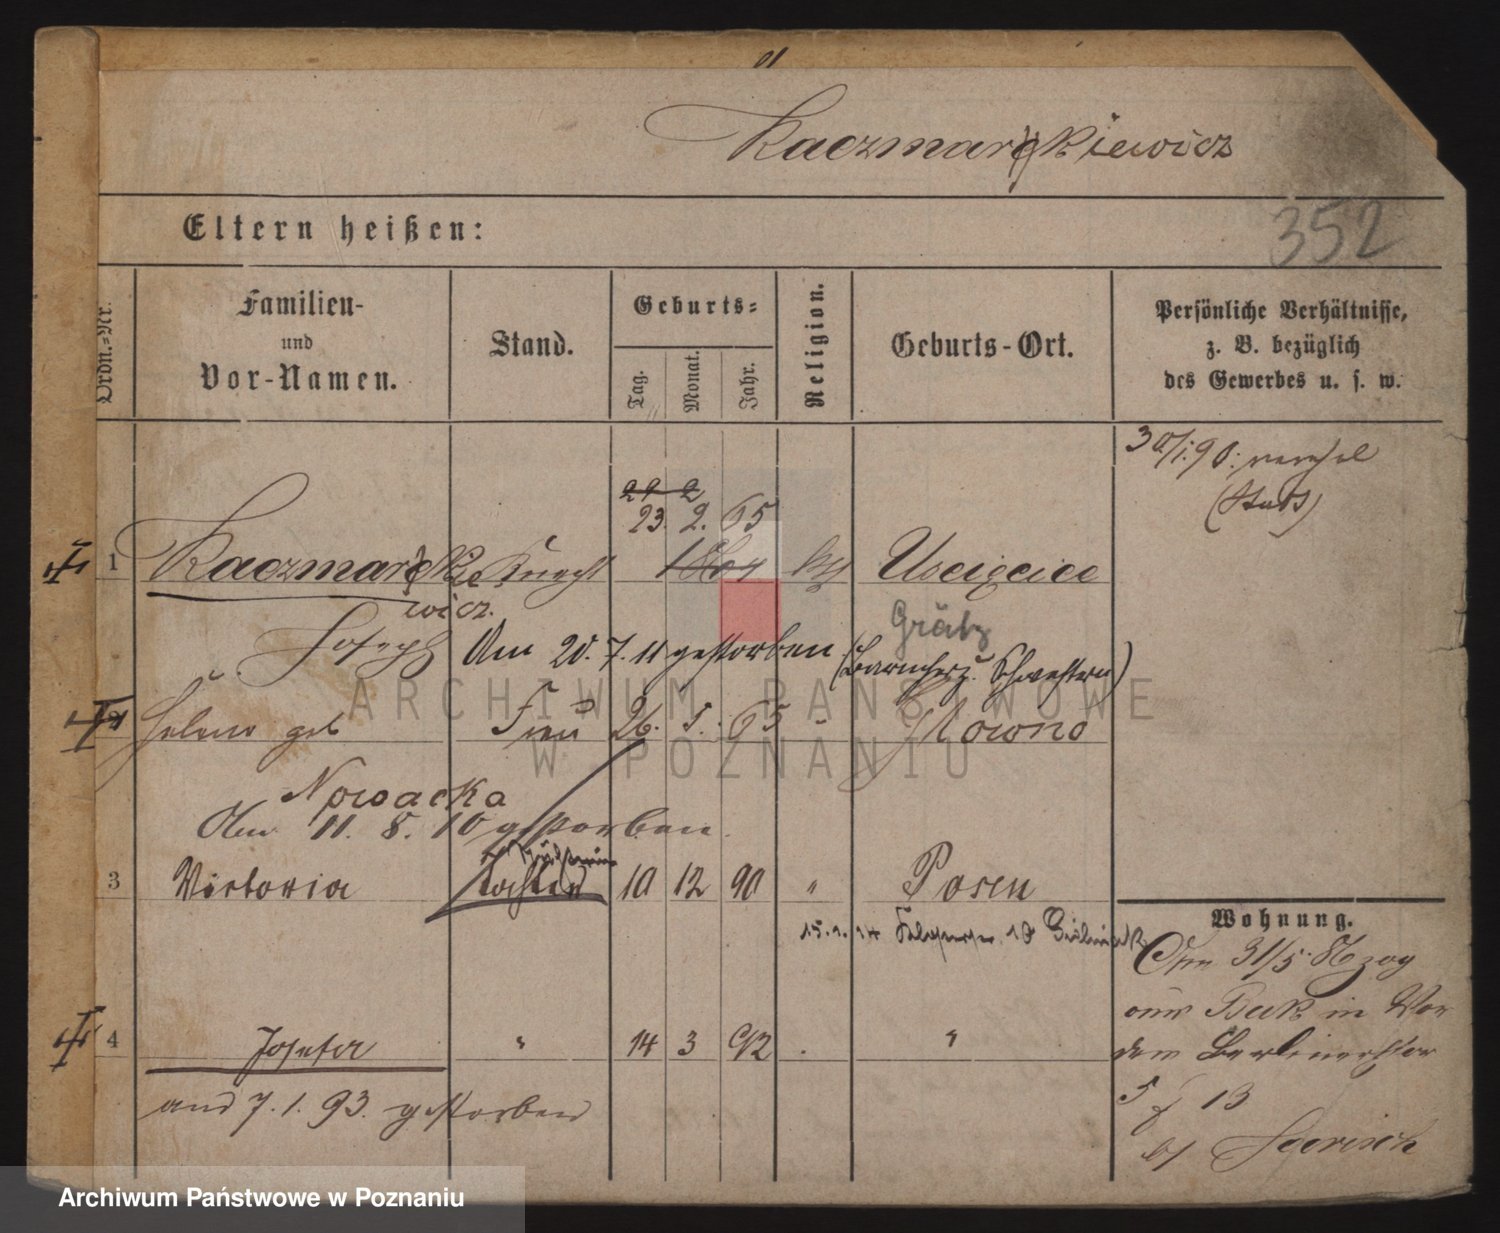 Kaczmarkiewicz
352
Eltern heißen:
Ordn.-Nr.
Familien-
und
Vor-Namen.
Stand.
Geburts-
Tag.
Monat.
Jahr.
Religion.
Geburts-Ort.
Persönliche Verhältnisse,
z. B. bezüglich
des Gewerbes u. s. w.
30/1. 90.
29 2
23. 2. 65
1 Kaczmarkie Knecht 1864 kth Usciecice
wicz.
Joseph Am 20. 7. 11 gestorben (Barmherz. Schwestern)
Grätz
Helene geb Frau 26. 5. 65 " Mowno
Nowacka
Am 11. 8. 10 gestorben.
3 Victoria Tochter 10 12 90 " Posen
15. 1. 14
Wohnung.
Am 31/5.
in Vor
dem Berlinerthor
5 f 13
4 Josefa " 14 3 92 . "
am 7. 1. 93. gestorben
ARCHIWUM PAŃSTWOWE
W POZNANIU
Archiwum Państwowe w Poznaniu